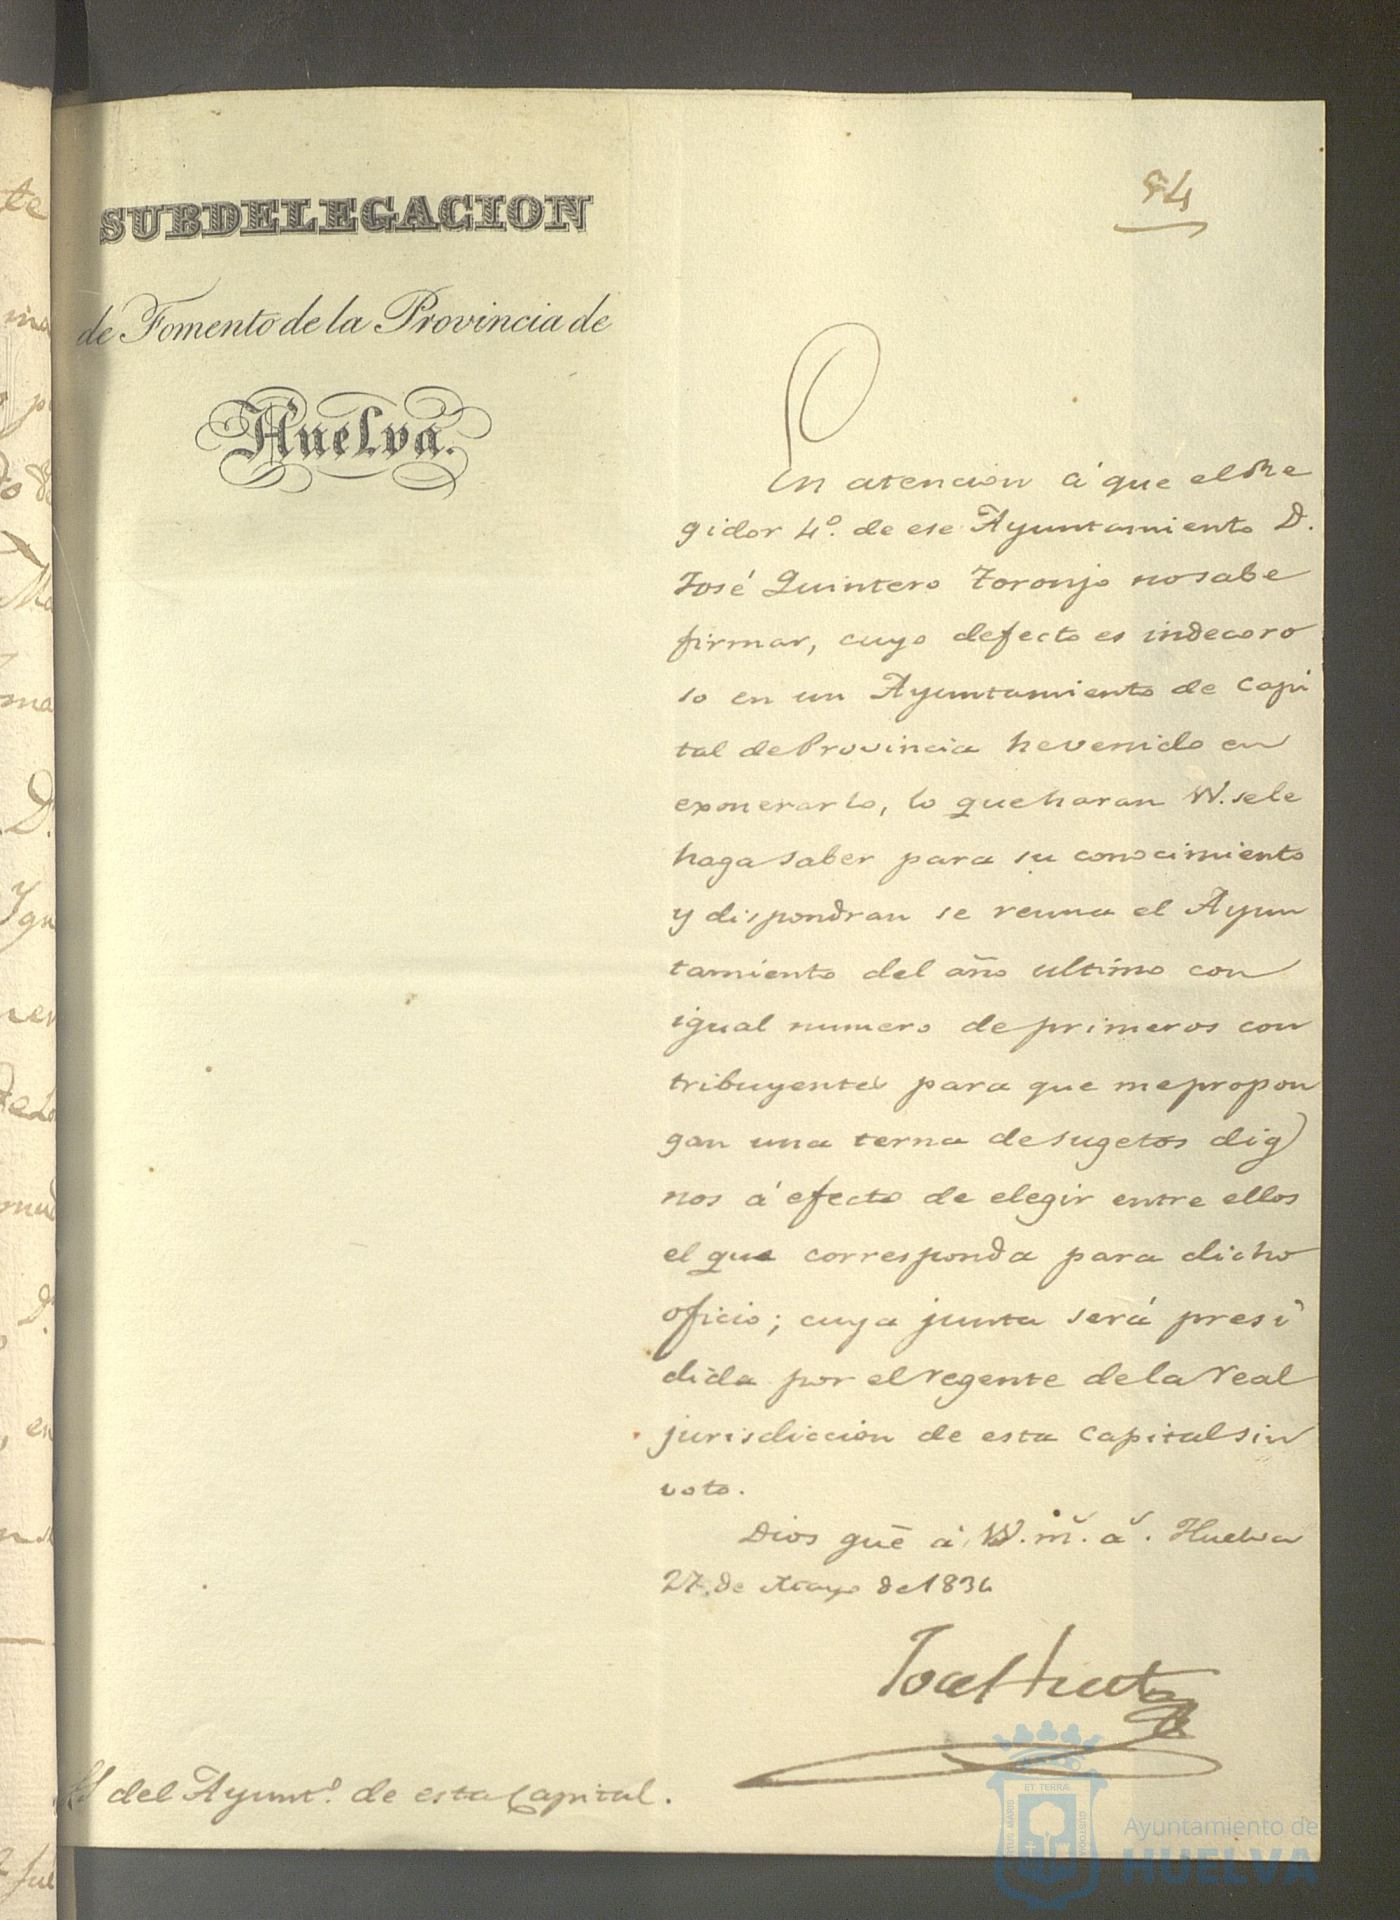 54
SUBDELEGACION
de Fomento de la Provincia de
Huelva.
En atencion á que el Re
gidor 4º. de ese Ayuntamiento D.
José Quintero Toronjo no sabe
firmar, cuyo defecto es indecoro
so en un Ayuntamiento de Capi
tal de Provincia he venido en
exonerarlo, lo que haran VV. se le
haga saber para su conocimiento
y dispondran se reuna el Ayun
tamiento del año ultimo con
igual numero de primeros con
tribuyentes para que me propon
gan una terna de sugetos dig
nos á efecto de elegir entre ellos
el que corresponda para dicho
oficio; cuya junta será presi
dida por el regente de la real
jurisdiccion de esta Capital sin
voto.
Dios gue á VV. m. a. Huelva
27. de Mayo de 1834
SS del Ayuntº. de esta Capital.
Ayuntamiento de
HUELVA